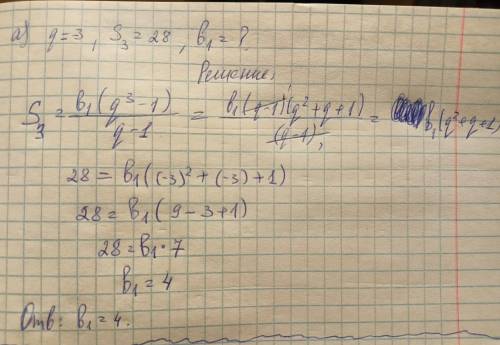 а) q=3, S₃=28, b₁=?
Решение:
S₃ = b₁(q³-1)/q-1 = b₁(q-1)(q²+q+1)/(q-1) = b₁(q²+q+1)
28 = b₁((-3)²+(-3)+1)
28 = b₁(9-3+1)
28 = b₁·7
b₁ = 4
Отв: b₁=4.